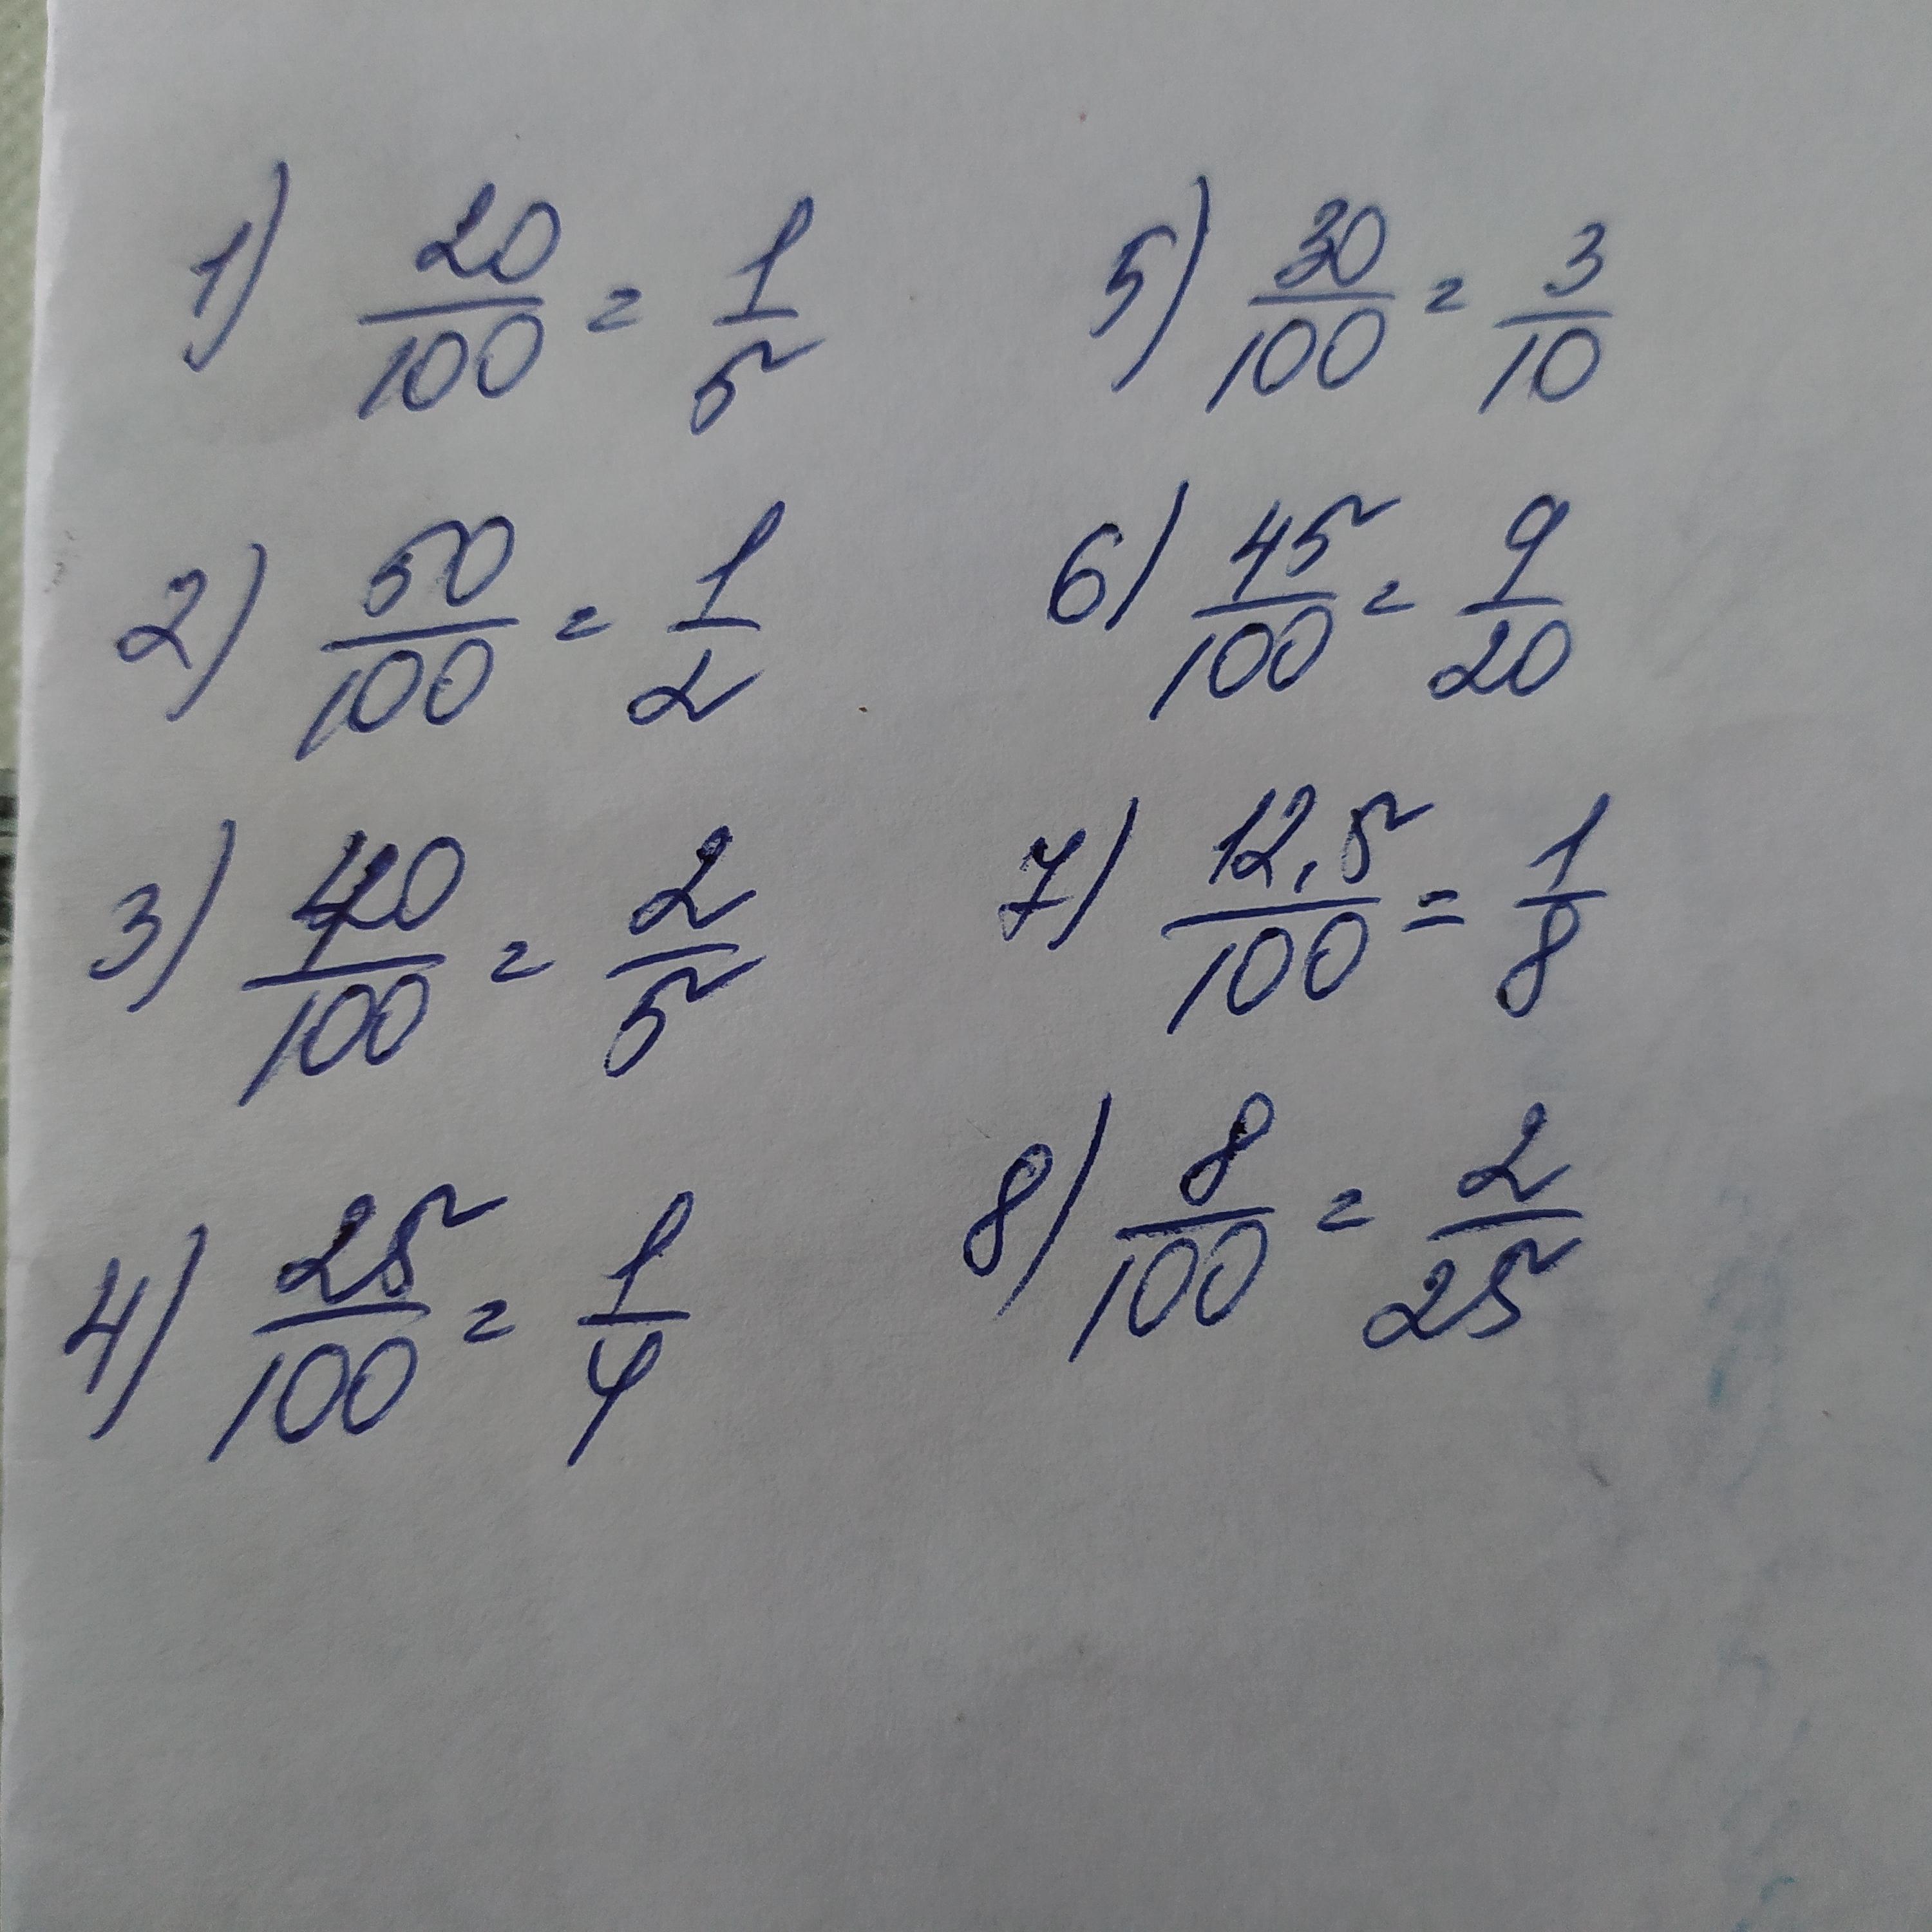 1) 20/100 = 1/5
2) 50/100 = 1/2
3) 40/100 = 2/5
4) 25/100 = 1/4
5) 30/100 = 3/10
6) 45/100 = 9/20
7) 12,5/100 = 1/8
8) 8/100 = 2/25